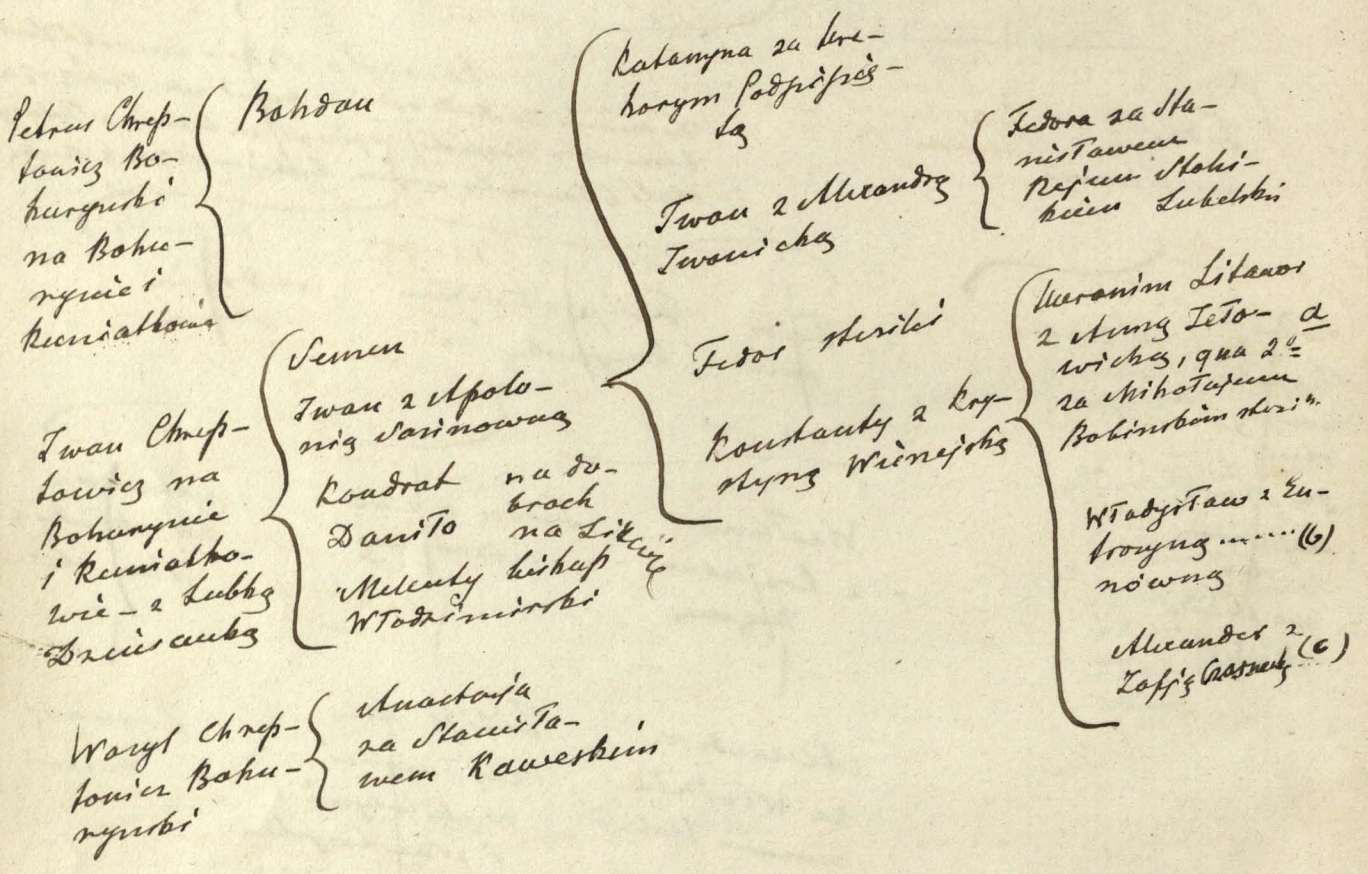 Petrus Chreß-
towicz Bo-
huryński
na Bohu-
rynie i
Kuniatkowie
Bohdan
Iwan Chreß-
towicz na
Bohurynie
i Kuniatko-
wie – z Lubką
Semen
Iwan z Apolo-
nią Sasinowną
Kondrat na do-
brach
Daniło na
Melenty biskup
Włodzimirski
Wasyl Chreß-
towicz Bohu-
ryński
Anastazja
za Stanisła-
wem Kaweskim
Katarzyna za
Iwan z Alexandrą
Iwanicką
Fedor
Konstanty z Kry-
styną Wiśniejską
Fedora za Sta-
nisławem
Rejem Stolni-
kiem Lubelski
Hieronim Litawor
z Anną Jeło-
wicką, qua 2º
za Mikołajem
Babińskim
Władysław z Eu-
frozyną ...... (b)
nówną
Alexander z
Zofją (c)